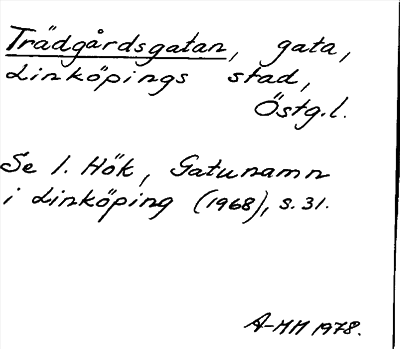 Trädgårdsgatan, gata,
Linköpings stad,
Östg.l.
Se I. Hök, Gatunamn
i Linköping (1968), s. 31.
A-MM 1978.